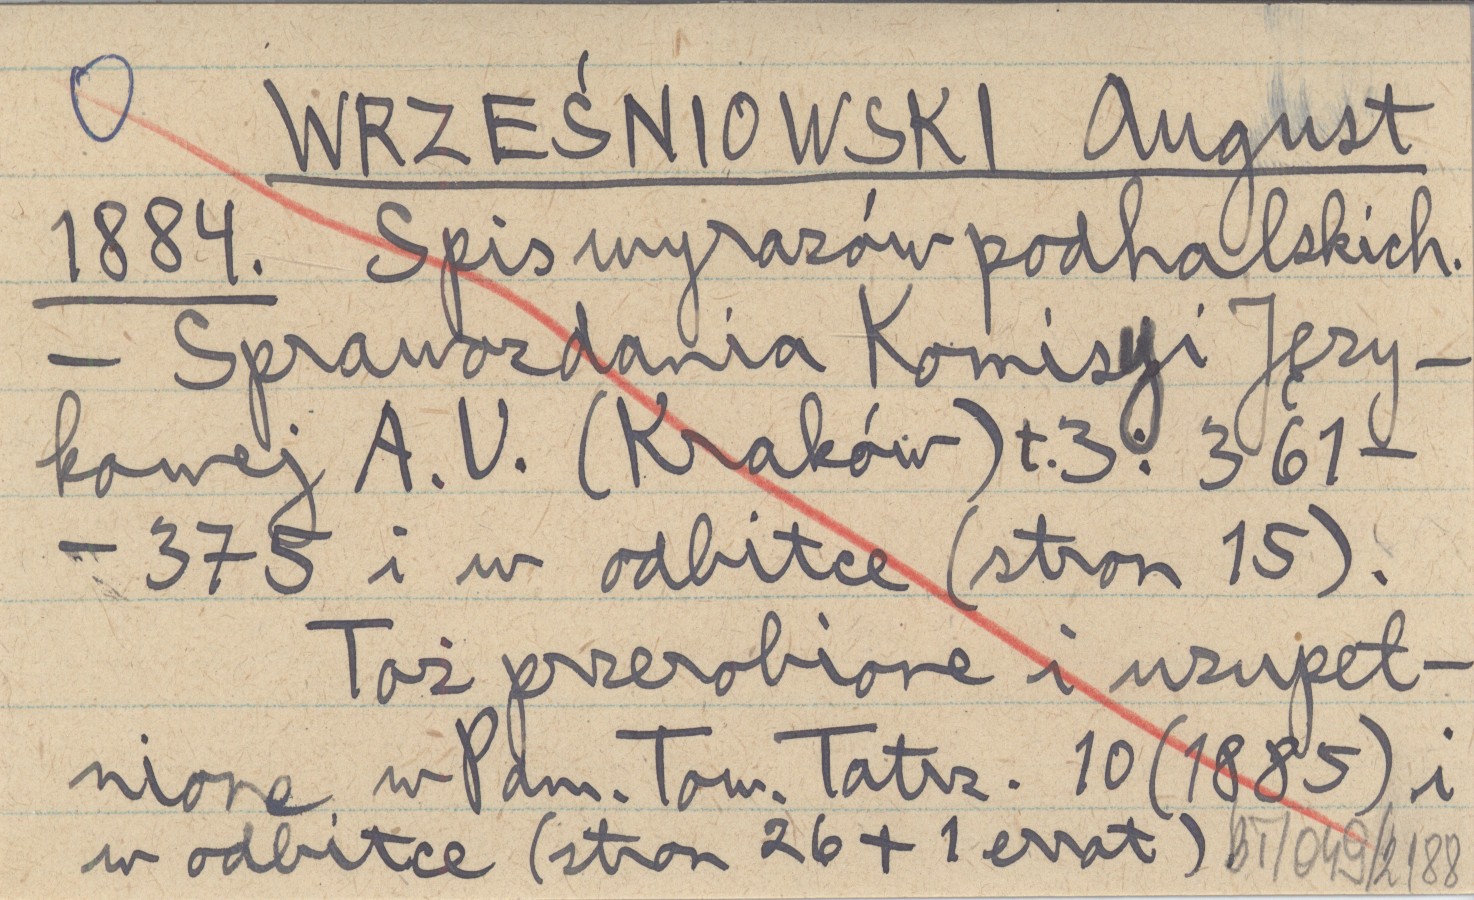 WRZEŚNIOWSKI August
1884. Spis wyrazów podhalskich.
– Sprawozdania Komisyi Języ–
kowej A.U. (Kraków) t.3: 361–
– 375 i w odbitce (stron 15).
Toż przerobione i uzupeł–
nione w Pam. Tow. Tatrz. 10 (1885) i
w odbitce (stron 26 + 1 errat)
BT/049/2/88